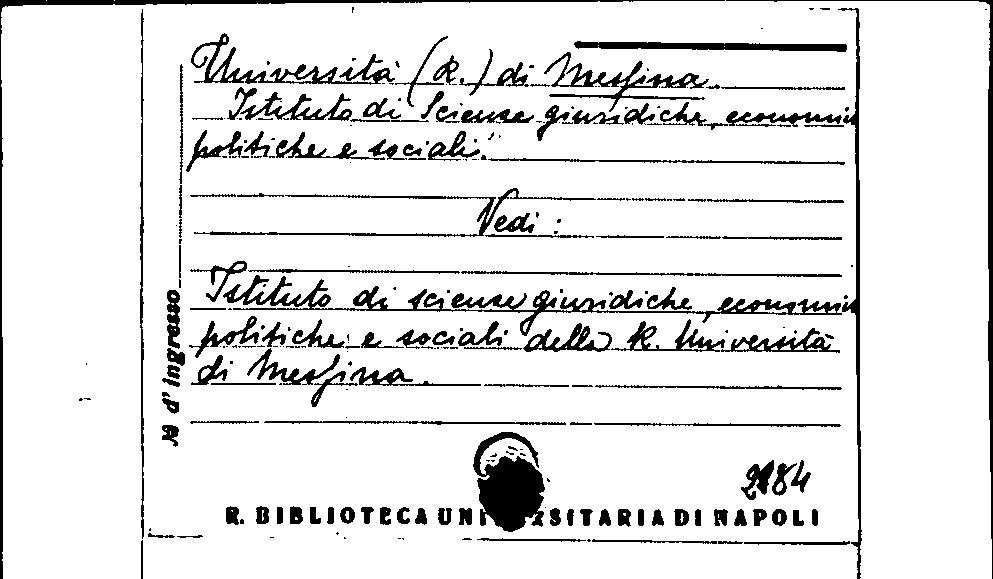 Università (R.) di Messina.
Istituto di Scienze giuridiche, economich
politiche e sociali.
Vedi :
Istituto di scienze giuridiche, economich
politiche e sociali della R. Università
di Messina.
№ d'ingresso
R. BIBLIOTECA UNIVERSITARIA DI NAPOLI